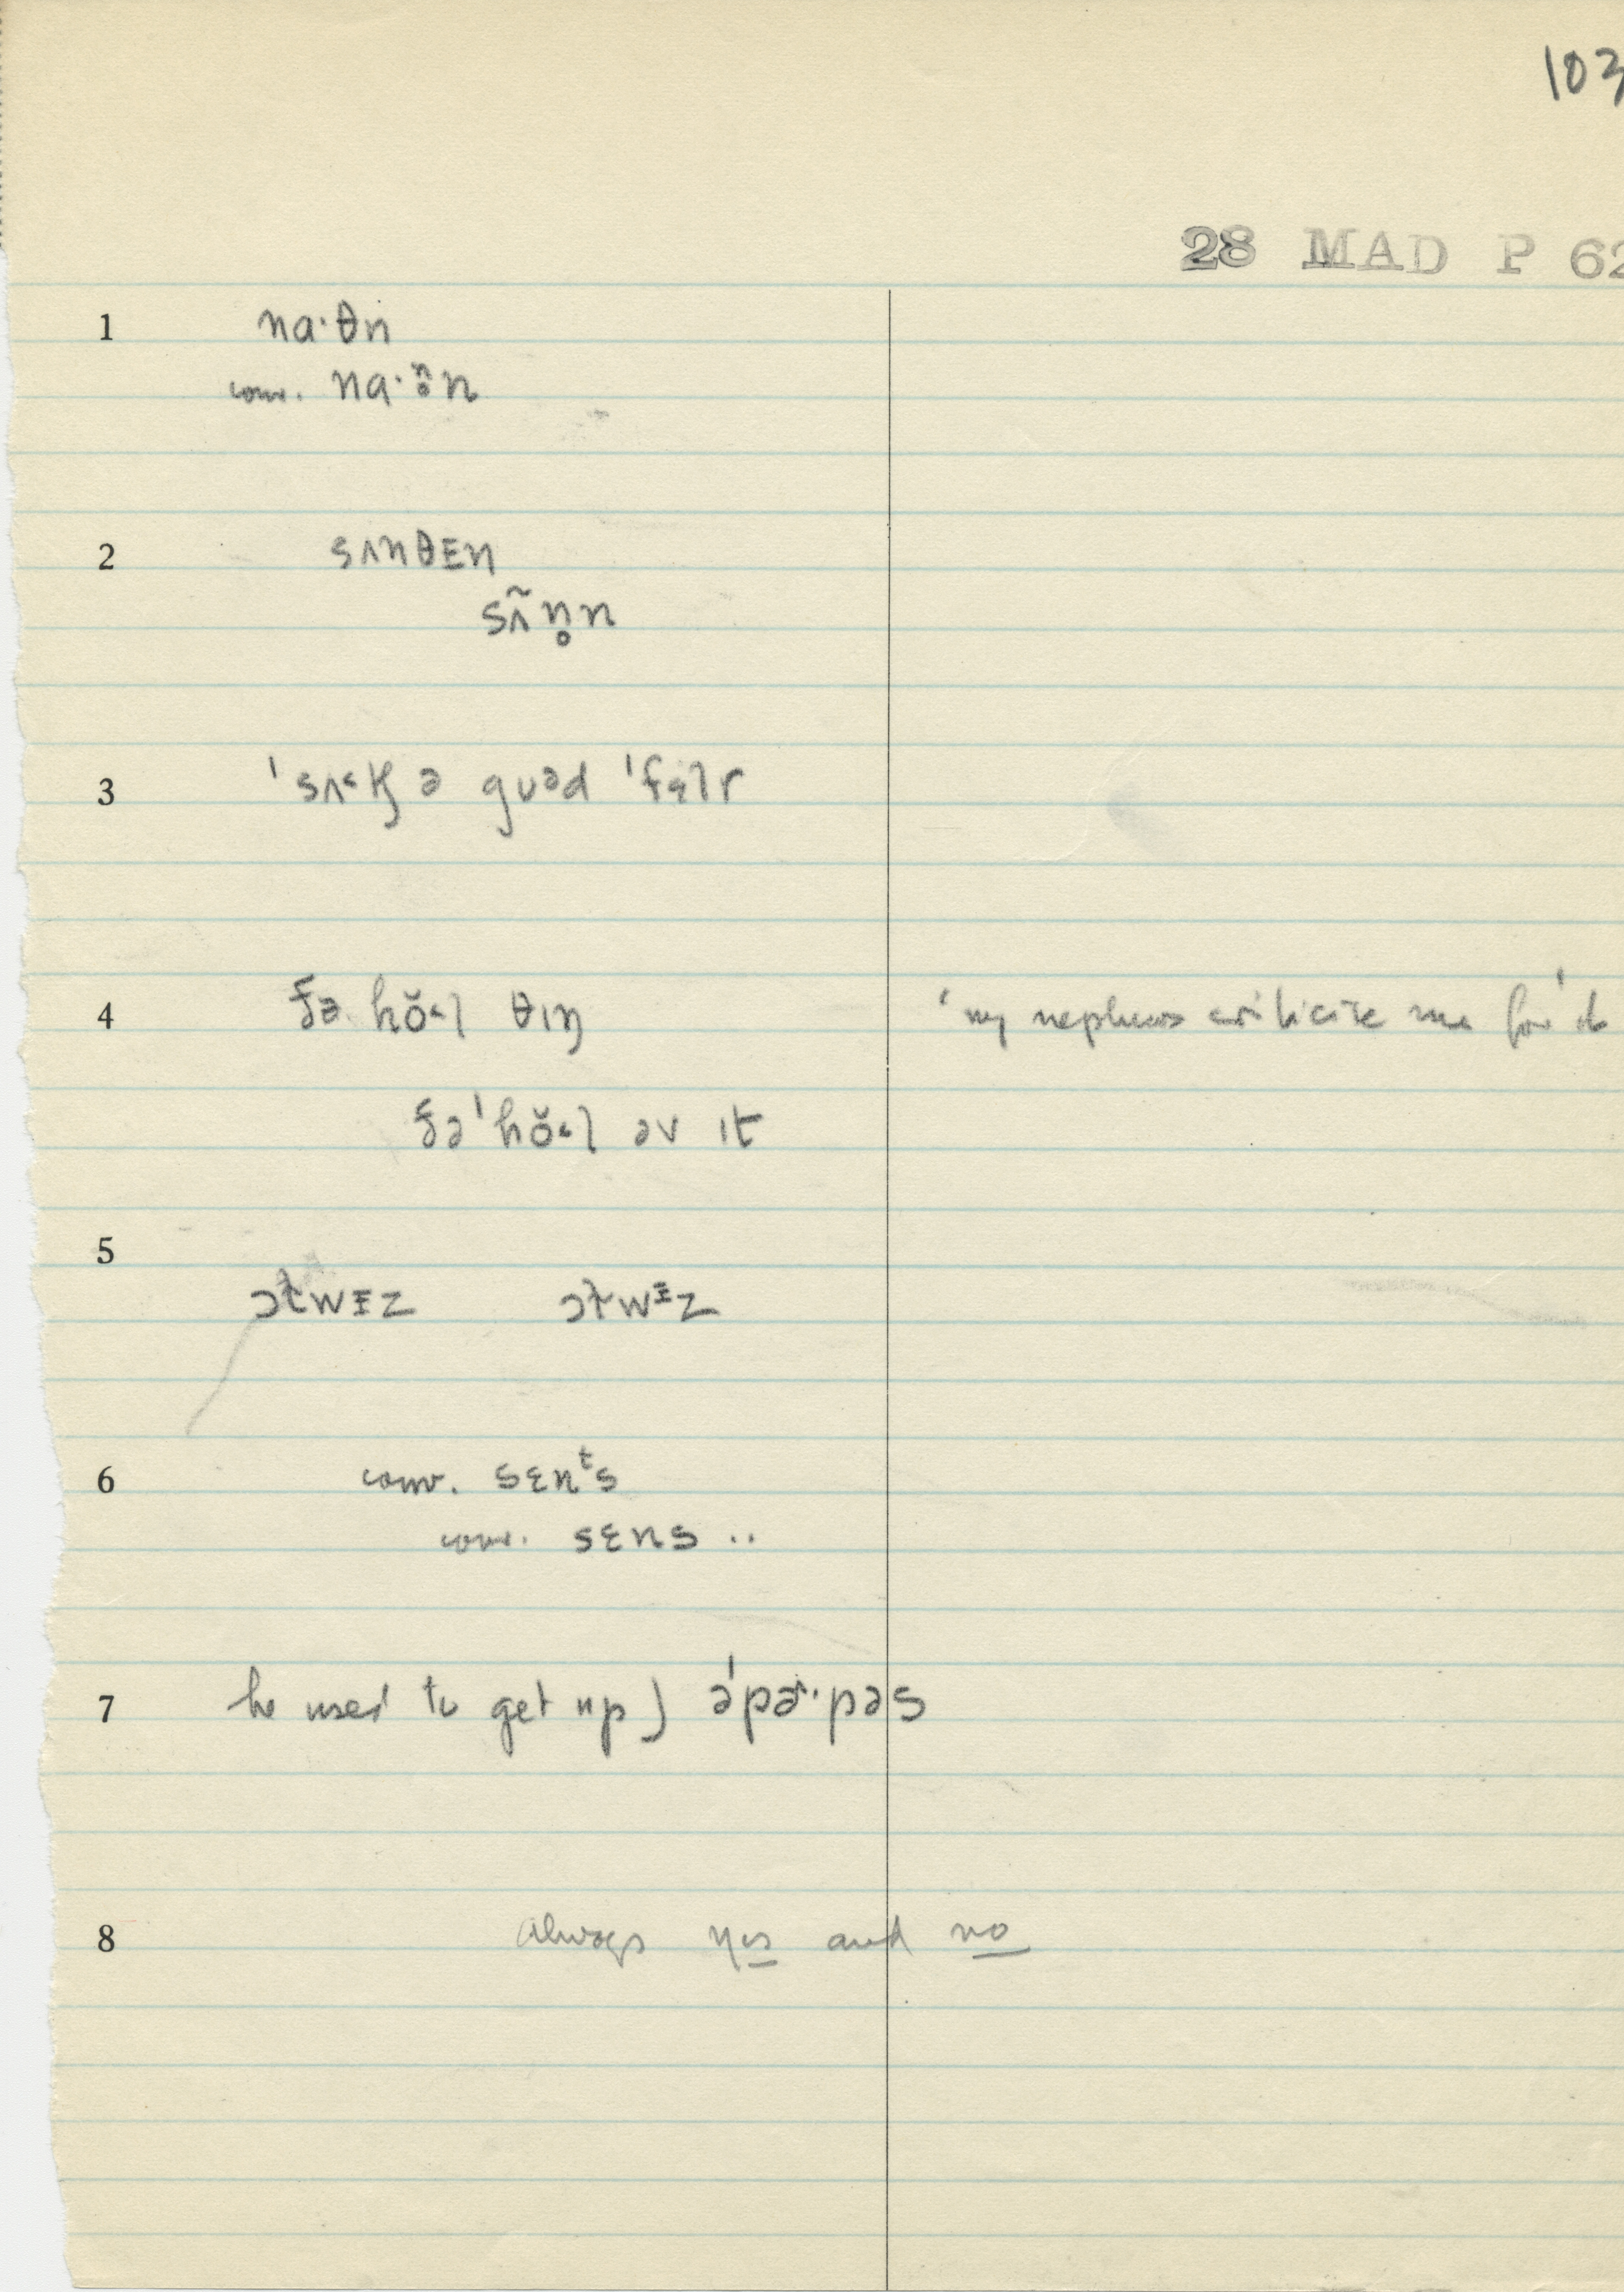 103
28 MAD P 62
1 na·θn
conv. na·n̥n
2 sʌnθɛn
sʌ̃n̥n
3 ˈsʌ˂k̬ ə guəd
4 ðə hŏ˂l θɪŋ 'my nephews criticize me for it
ðəˈhŏ˂l əv ɪt
5 ɔɫwɪz ɔɫwᶦz
6 conv. sɛnᵗs
conv. sɛns ..
7 he used to get up) əˈpɚ·pəs
8 always yes and no